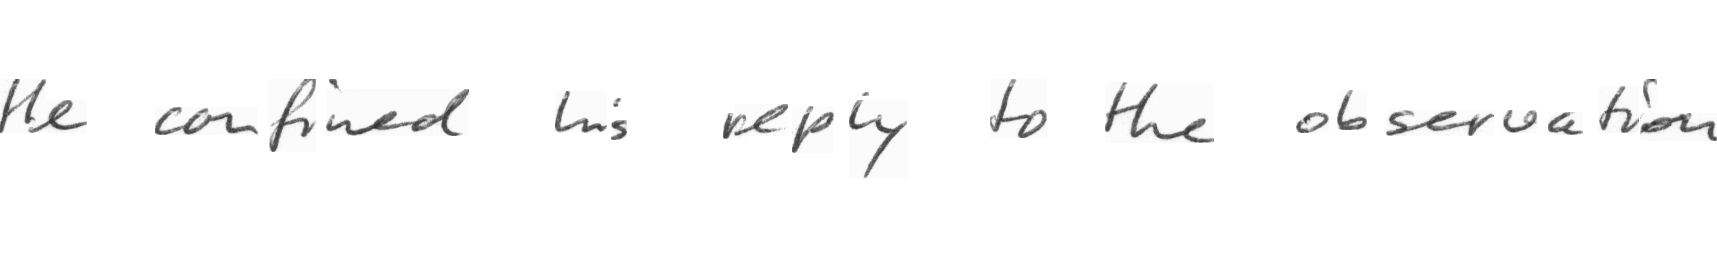 He confined his reply to the observation